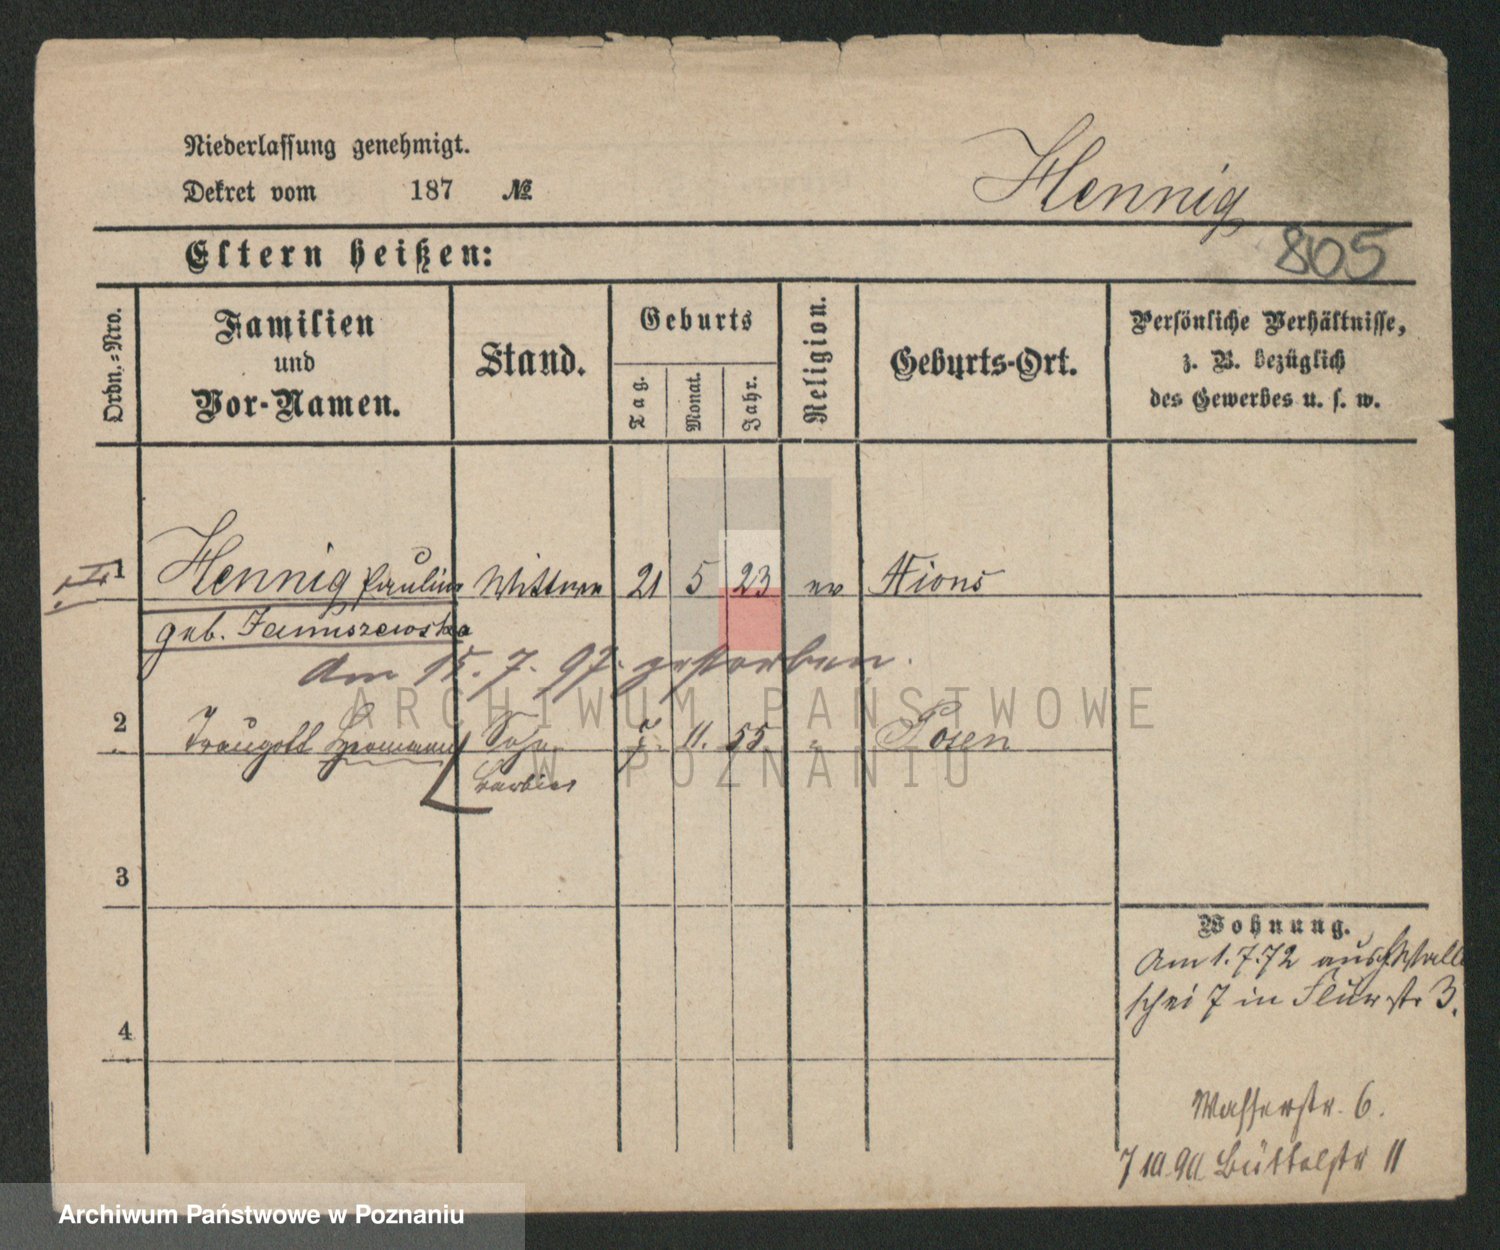 Niederlassung genehmigt.
Dekret vom 187 №
Hennig
Eltern heißen:
805
Ordn.-Nro.
Familien
und
Vor-Namen.
Stand.
Geburts
Tag.
Monat.
Jahr.
Religion.
Geburts-Ort.
Persönliche Verhältnisse,
z. B. bezüglich
des Gewerbes u. s. w.
1 Hennig Pauline Wittwe 21 5 23 ev Xions
geb. Januszewska
Am 15. 7. 97. gestorben.
2 Traugott Hermann Sohn 7. 11. 55. " Posen
Barbier
3
4
Wohnung.
Am 1. 7. 72 aus Walli
schei 7 in Flurstr 3.
Wasserstr. 6.
7 10 90 Büttelstr 11
ARCHIWUM PAŃSTWOWE
W POZNANIU
Archiwum Państwowe w Poznaniu